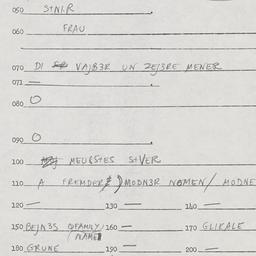 050 STNLR
060 FRAU
070 DI VAJB3R UN ZEJ3RE MENER
071 —
080 O
090 O
100 MEUBSTES STVER
110 A FREMDER / MODN3R NOMEN / MODNE
120 — 130 — 140 —
150 BEJN3S (FAMILY NAME) 160 — 170 GLIKALE
180 GRUNE 190 — 200 —